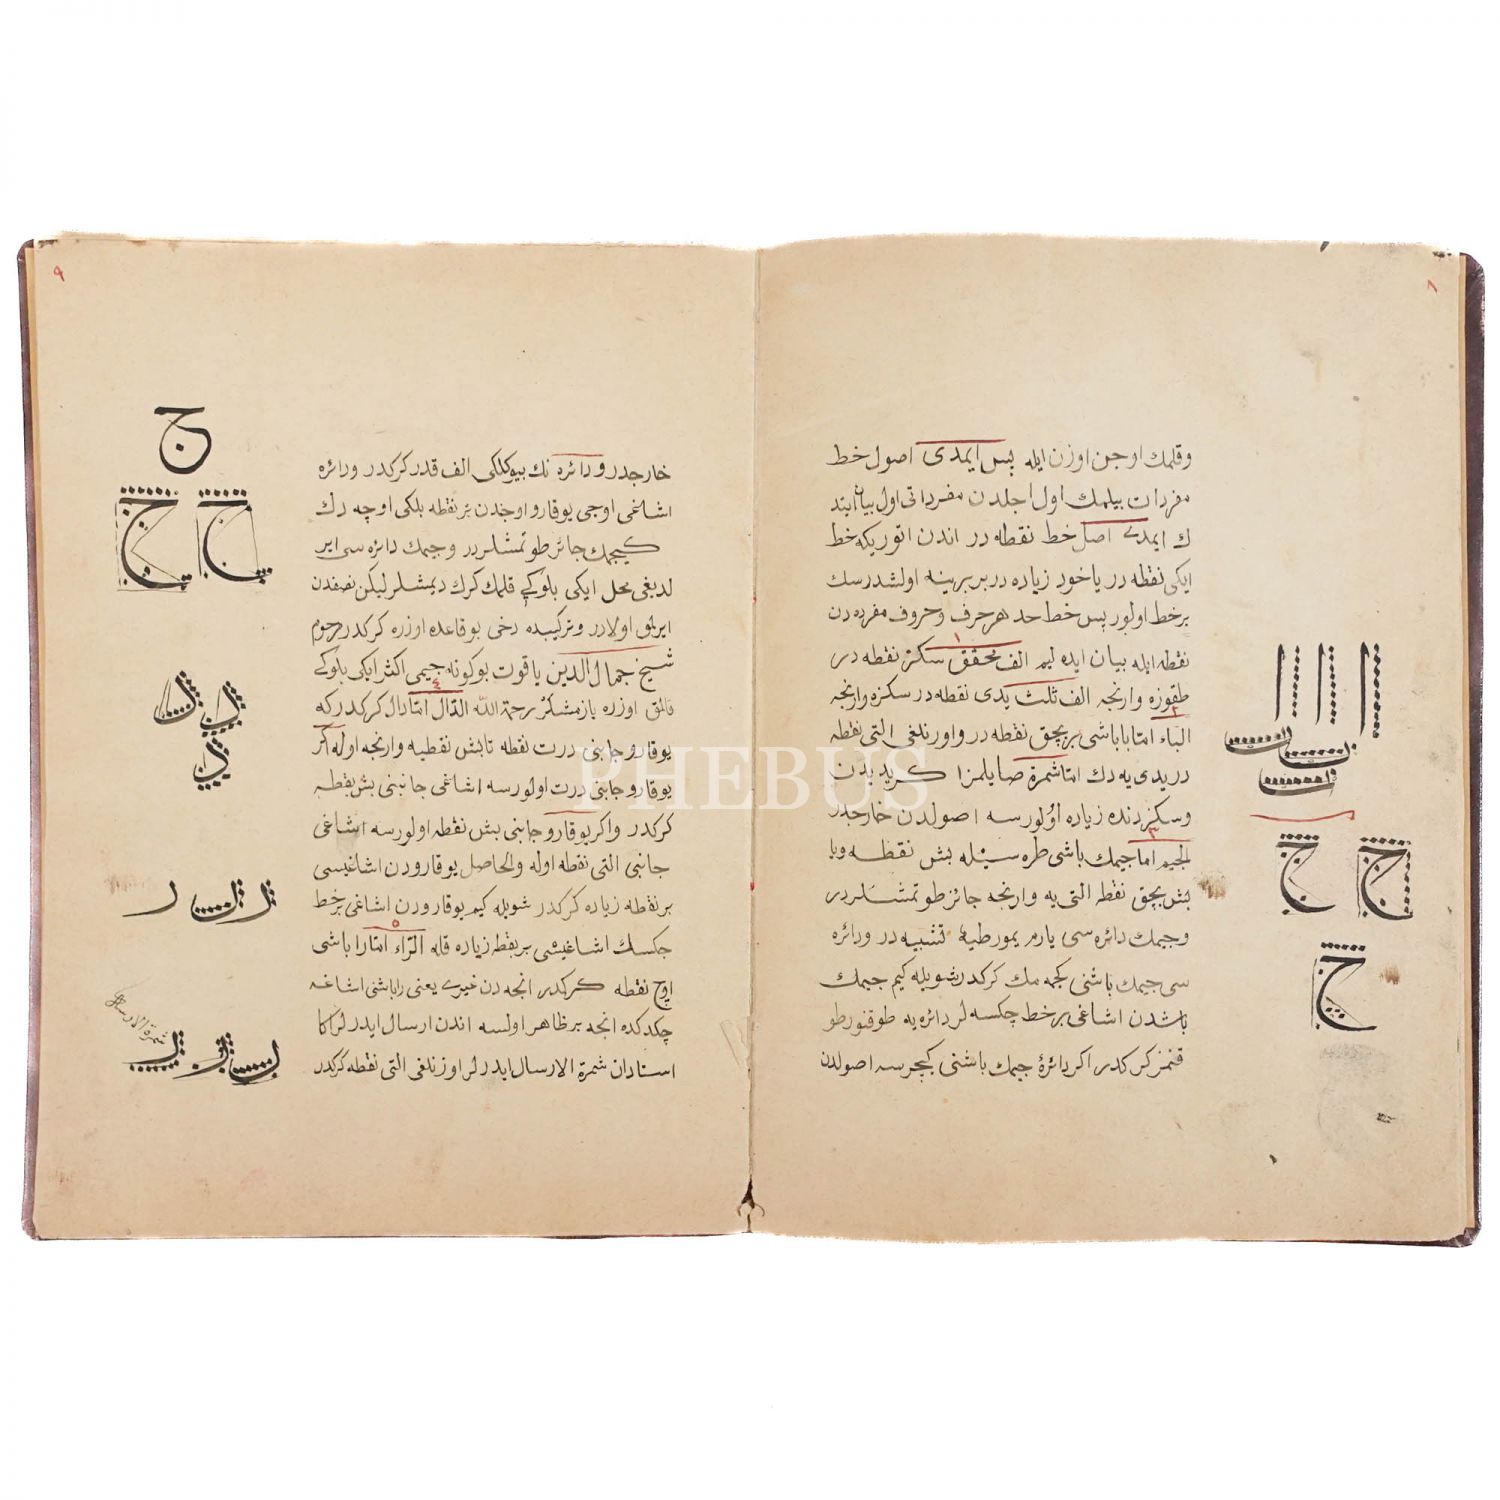 ٨
وقلمك اوجن اوزن ايله پس ايمدى اصول خط
مفردات بيلمك اول اجلدن مفرداتى اول بيان ابتد
ك ايمدى اصل خط نقطه در اندن اتوريكه خط
ايكى نقطه در ياخود زياده در بر برينه اولشدرسك
بر خط اولور پس خط حد هر حرف وحروف مفرده دن
نقطه ايله بيان ايده ليم الف محقق سكز نقطه در
١
طقوزه وارنجه الف ثلث يدى نقطه در سكزه وارنجه
٢
الباء امتا با باشى بر بچق نقطه در واورنلغى التى نقطه
در يدى يه دك امتا شمرة صايلمز
وسكز دنده زياده اولورسه اصولدن خارجدر
٣
الجيم اما جيمك باشى طره سيله بش نقطه ويا
بش بچق نقطه التى يه وارنجه جائز طوتمشلردر
وجيمك دائره سى يارم يمورطيه تشبيه در ودائره
سى جيمك باشنى كچمه مك كركدر شويله كيم جيمك
باشدن اشاغى بر خط چكسه لر دائره يه طوقنور طو
قنمز كركدر اكر دائرهٔ جيمك باشنى كچرسه اصولدن
٩
خارجدر ودائره نك بيوكلكى الف قدر كركدر ودائره
اشاغى اوجى يوقارو اوجدن بر نقطه بلكى اوچه دك
كيچمك جائز طوتمشلردر وجيمك دائره سى اير
لديغى محل ايكى بلوكى قلمك كرك ديمشلر ليكن نصفدن
ايرلق اولادر وتركيبده دخى بو قاعده اوزره كركدر مرحوم
شيخ جمال الدين ياقوت بوكونه جيمى اكثر ايكى بلوكى
٤
قالمق اوزره يازمشدر رحمة الله الدال امتا دال كركدر كه
يوقارو جانبى درت نقطه تا بش نقطيه وارنجه اوله اكر
يوقارو جانبى درت اولورسه اشاغى جانبنى بش نقطه
كركدر واكر يوقارو جانبى بش نقطه اولورسه اشاغى
جانبى التى نقطه اوله والحاصل يوقارودن اشاغيسى
بر نقطه زياده كركدر شويله كيم يوقارودن اشاغى بر خط
٥
چكسك اشاغيسى بر نقطه زياده قاله الراء امتا را باشى
اوچ نقطه كركدر انجه دن غيرى يعنى را باشنى اشاغه
چكدكده انجه بر ظاهر اولسه اندن ارسال ايدرلر اكا
استادان شمرة الارسال ايدرلر اوزنلغى التى نقطه كركدر
ج
شمرة الارسال
PHEBUS